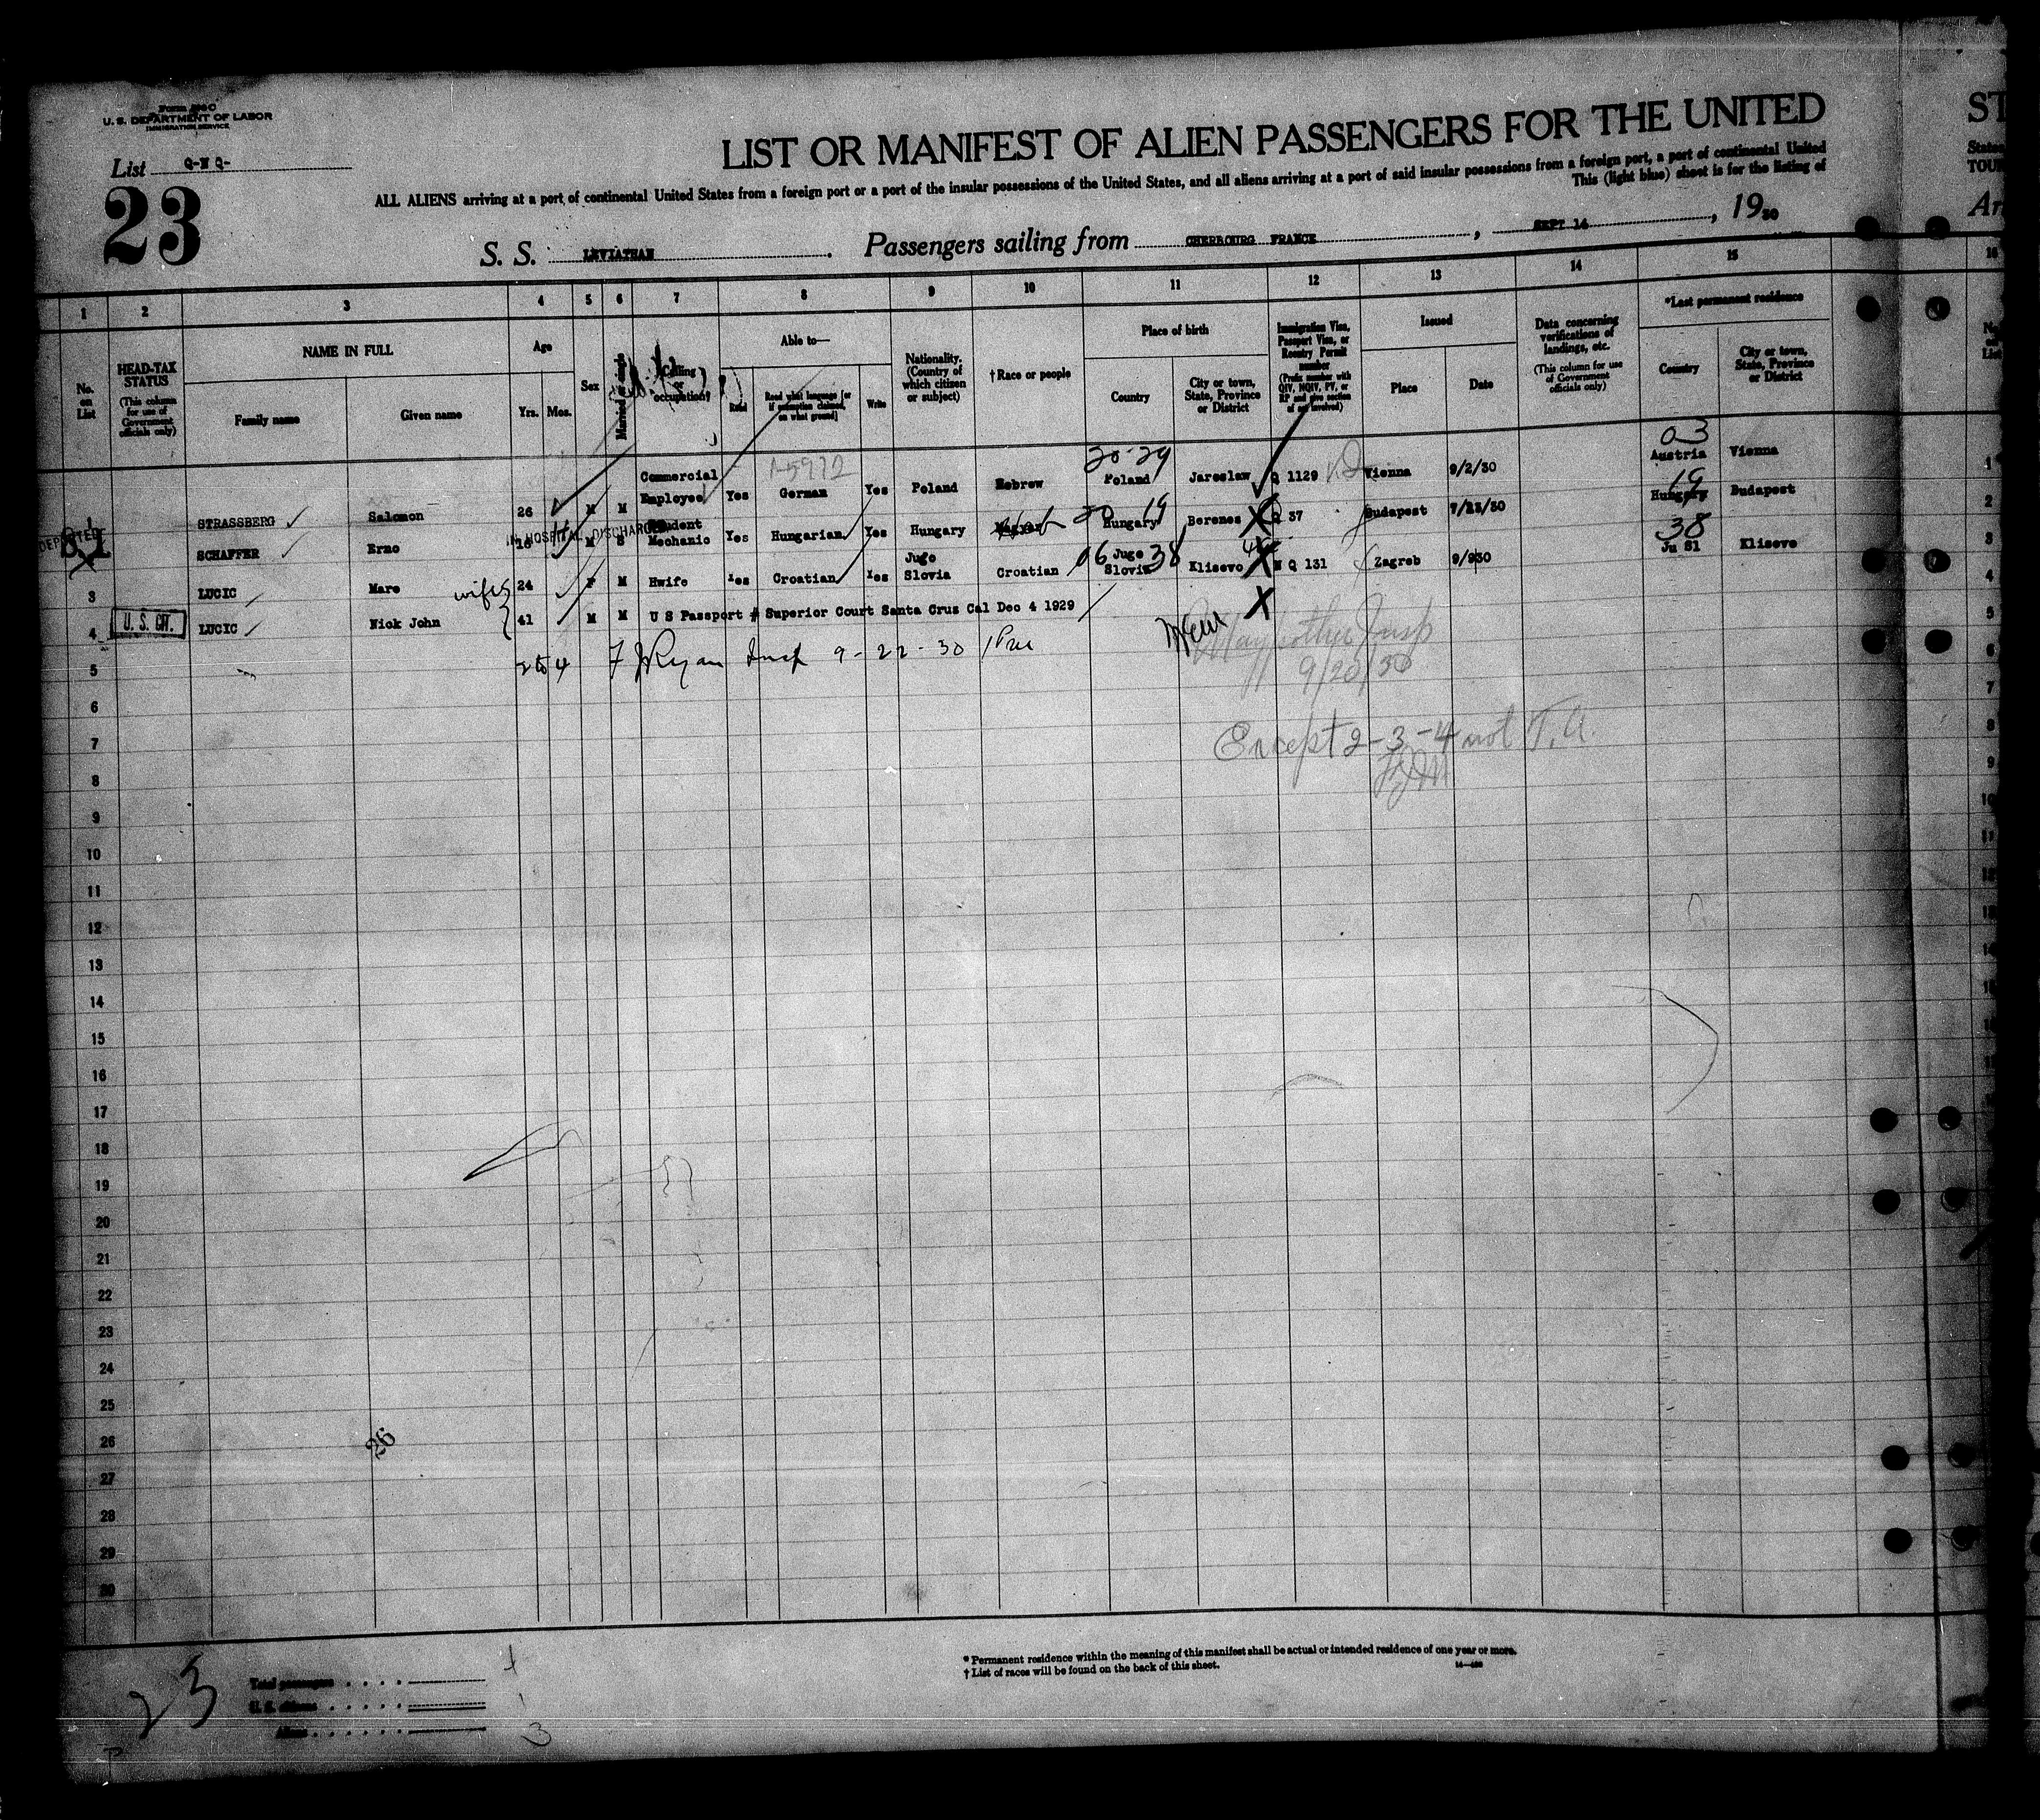 Form 500 C
U. S. DEPARTMENT OF LABOR
IMMIGRATION SERVICE
List Q-N Q-
23
LIST OR MANIFEST OF ALIEN PASSENGERS FOR THE UNITED
ST
ALL ALIENS arriving at a port of continental United States from a foreign port or a port of the insular possessions of the United States, and all aliens arriving at a port of said insular possessions from a foreign port, a port of continental United
States
This (light blue) sheet is for the listing of
TOUR
S. S. LEVIATHAN. Passengers sailing from CHERBOURG FRANCE, SEPT 14, 1930
Arr
1 2 3 4 5 6 7 8 9 10 11 12 13 14 15 16
No. on List
HEAD-TAX STATUS
(This column for use of Government officials only)
NAME IN FULL
Family name
Given name
Age
Yrs.
Mos.
Sex
Married or single
Calling or occupation
Able to—
Read
Read what language [or if exemption claimed, on what ground]
Write
Nationality. (Country of which citizen or subject)
†Race or people
Place of birth
Country
City or town, State, Province or District
Immigration Visa, Passport Visa, or Reentry Permit number
(Prefix number with QIV, NQIV, PV, or RP and give section of act involved)
Issued
Place
Date
Data concerning verifications of landings, etc.
(This column for use of Government officials only)
*Last permanent residence
Country
City or town, State, Province or District
No. on List
20-29
03
1 STRASSBERG Salomon 26 M M Commercial Employee Yes German Yes Poland Hebrew Poland Jaroslaw Q 1129 Vienna 9/2/30 Austria Vienna 1
DEPORTED
IN HOSPITAL DISCHARGED
20 19
19
SCHAFFER Erno 18 M S Student Mechanic Yes Hungarian Yes Hungary Magyar Heb Hungary Berenes X Q 37 Budapest 7/23/30 Hungary Budapest 2
06 38
38
3 LUCIC Mare wife 24 F M Hwife Yes Croatian Yes Jugo Slovia Croatian Jugo Slovia Klisevo X N Q 131 Zagreb 9/930 Ju Sl Klisevo 3
4 U. S. CIT. LUCIC Nick John 41 M M U S Passport # Superior Court Santa Crus Cal Dec 4 1929 X 4
5 F J Ryan Insp 9-22-30
Insp
9/20/30
6
7 Except 2-3-4 not T.A.
8
9
10
11
12
13
14
15
16
17
18
19
20
21
22
23
24
25
26 26
27
28
29
30
23
Total passengers
U. S. citizens
Aliens 3
* Permanent residence within the meaning of this manifest shall be actual or intended residence of one year or more.
† List of races will be found on the back of this sheet.